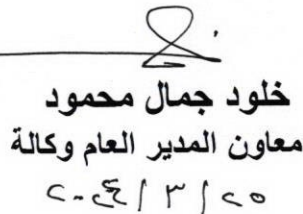 خلود جمال محمود
معاون المدير العام وكالة
٢٠٢٤/٣/٢٥